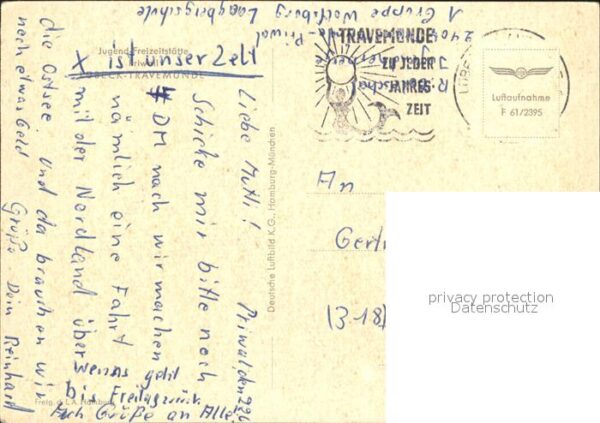 x ist unser Zelt
Jugend-Freizeitstätte
Priwall
LÜBECK-TRAVEMÜNDE
Priwal, den 22.6.
Liebe Mutti!
Schicke mir bitte noch
4 DM nach wir machen
nämlich eine Fahrt
mit der Nordland über
die Ostsee. Und da brauchen wir
noch etwas Geld
Grüße Dein Reinhard
Wenns geht
bis Freitag zurück
Auch Grüße an Alle
Freig. d. L.A. Hamburg
Deutsche Luftbild K.G., Hamburg-München
Langbergschule
Gruppe Wolfsburg
Priwal
TRAVEMÜNDE
ZU JEDER
JAHRES
ZEIT
17
Luftaufnahme
F 61/2395
An
(318)
privacy protection
Datenschutz